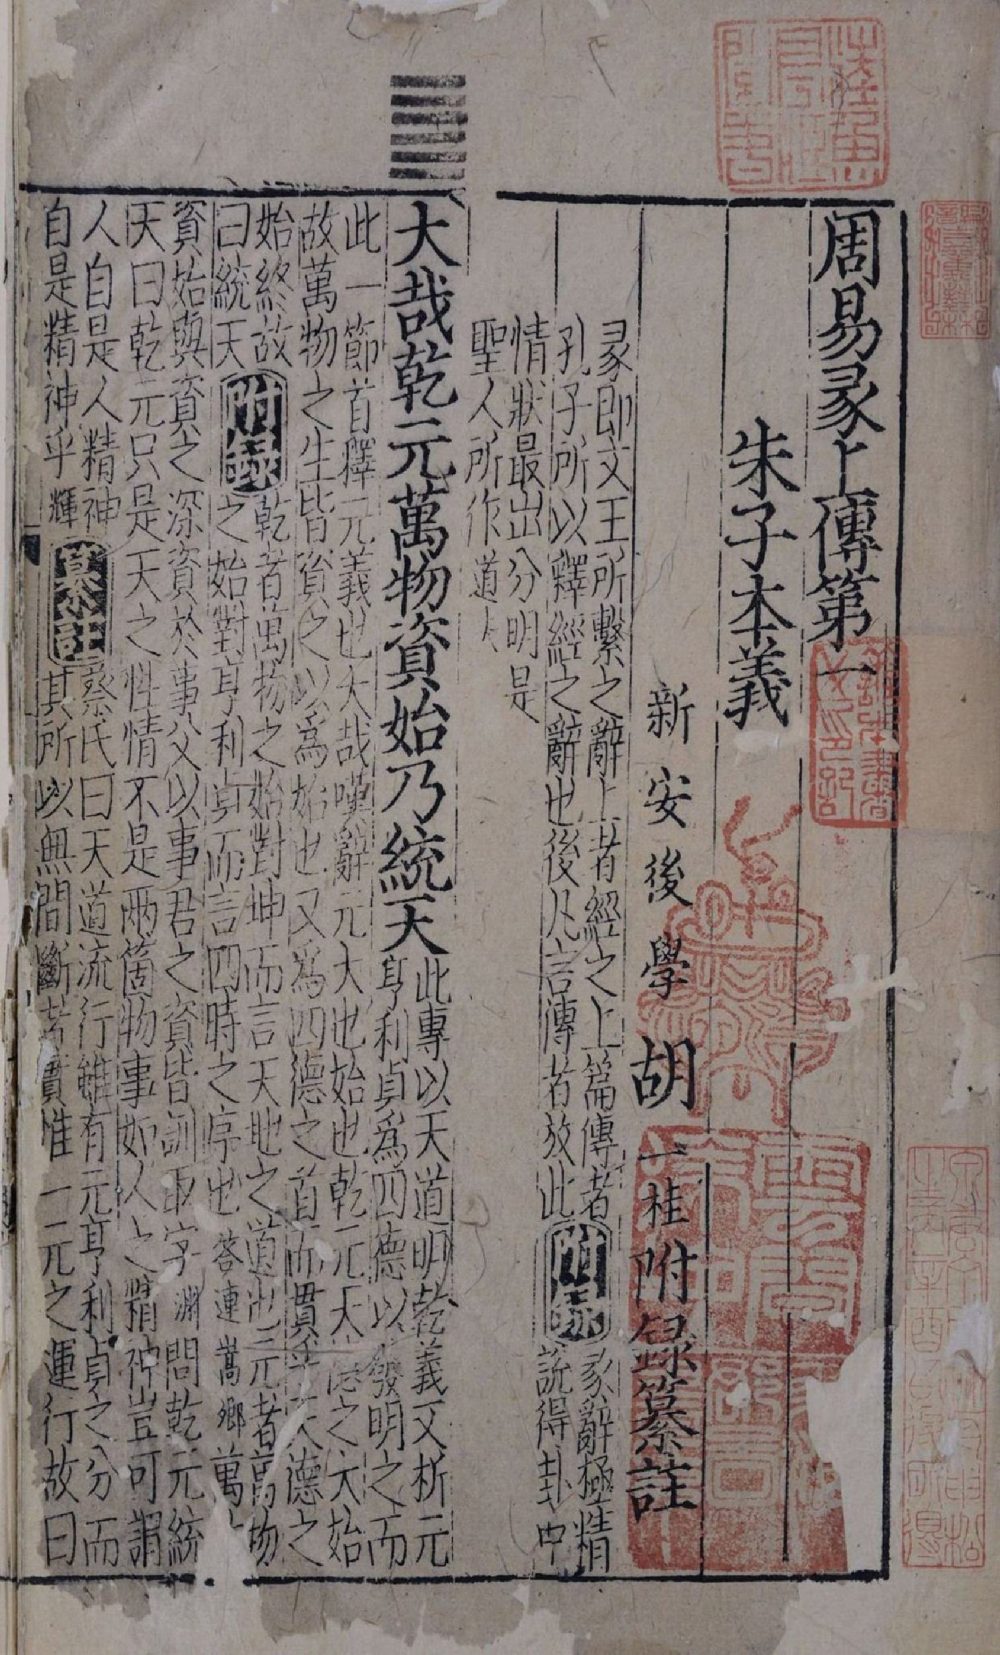 周易彖上傳第一
朱子本義
新安後學胡一桂附録纂註
彖即文王所繫之辭上者經之上篇傳者
孔子所以釋經之辭也後凡言傳者放此
附録
彖辭極精
說得卦中
情狀最出分明是
聖人所作道
大哉乾元萬物資始乃統天
此專以天道明乾義又析元
亨利貞爲四德以發明之而
此一節首釋元義也大哉嘆辭元大也始也乾元天德之大始
故萬物之生皆資之以爲始也又爲四德之首而貫乎天德之
始終故
曰統天
附録
乾者萬物之始對坤而言天地之道也元者萬物
之始對亨利貞而言四時之序也 答連嵩鄉 萬
資始與資之深資於事父以事君之資皆訓取字 淵 問乾元統
天曰乾元只是天之性情不是兩箇物事如人之精神豈可謂
人自是人精神
自是精神乎 輝
纂註
蔡氏曰天道流行雖有元亨利貞之分而
其所以無間斷者實惟一元之運行故曰